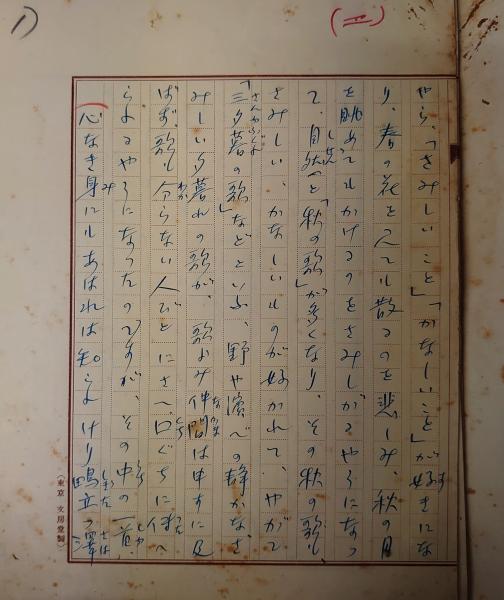 1)
(二)
やら、「さみしいこと」「かなしいこと」が好きにな
り、春の花を見ても散るのを悲しみ、秋の月
を眺めてもかげるのをさみしがるやうになつ
て、自然と「秋の歌」が多くなり、その秋の歌も
さみしい、かなしいものが好かれて、やがて
「三夕暮の歌」などといふ、野や濱べの静かなさ
みしい夕暮れの歌が、歌よみ仲間は申すに及
ばず歌も分らない人びとにさへ、口ぐちに伝へ
らるるやうになつたのですが、その中の一首、
心なき身にもあはれは知られけり鴫立つ澤
(東京 文房堂製)